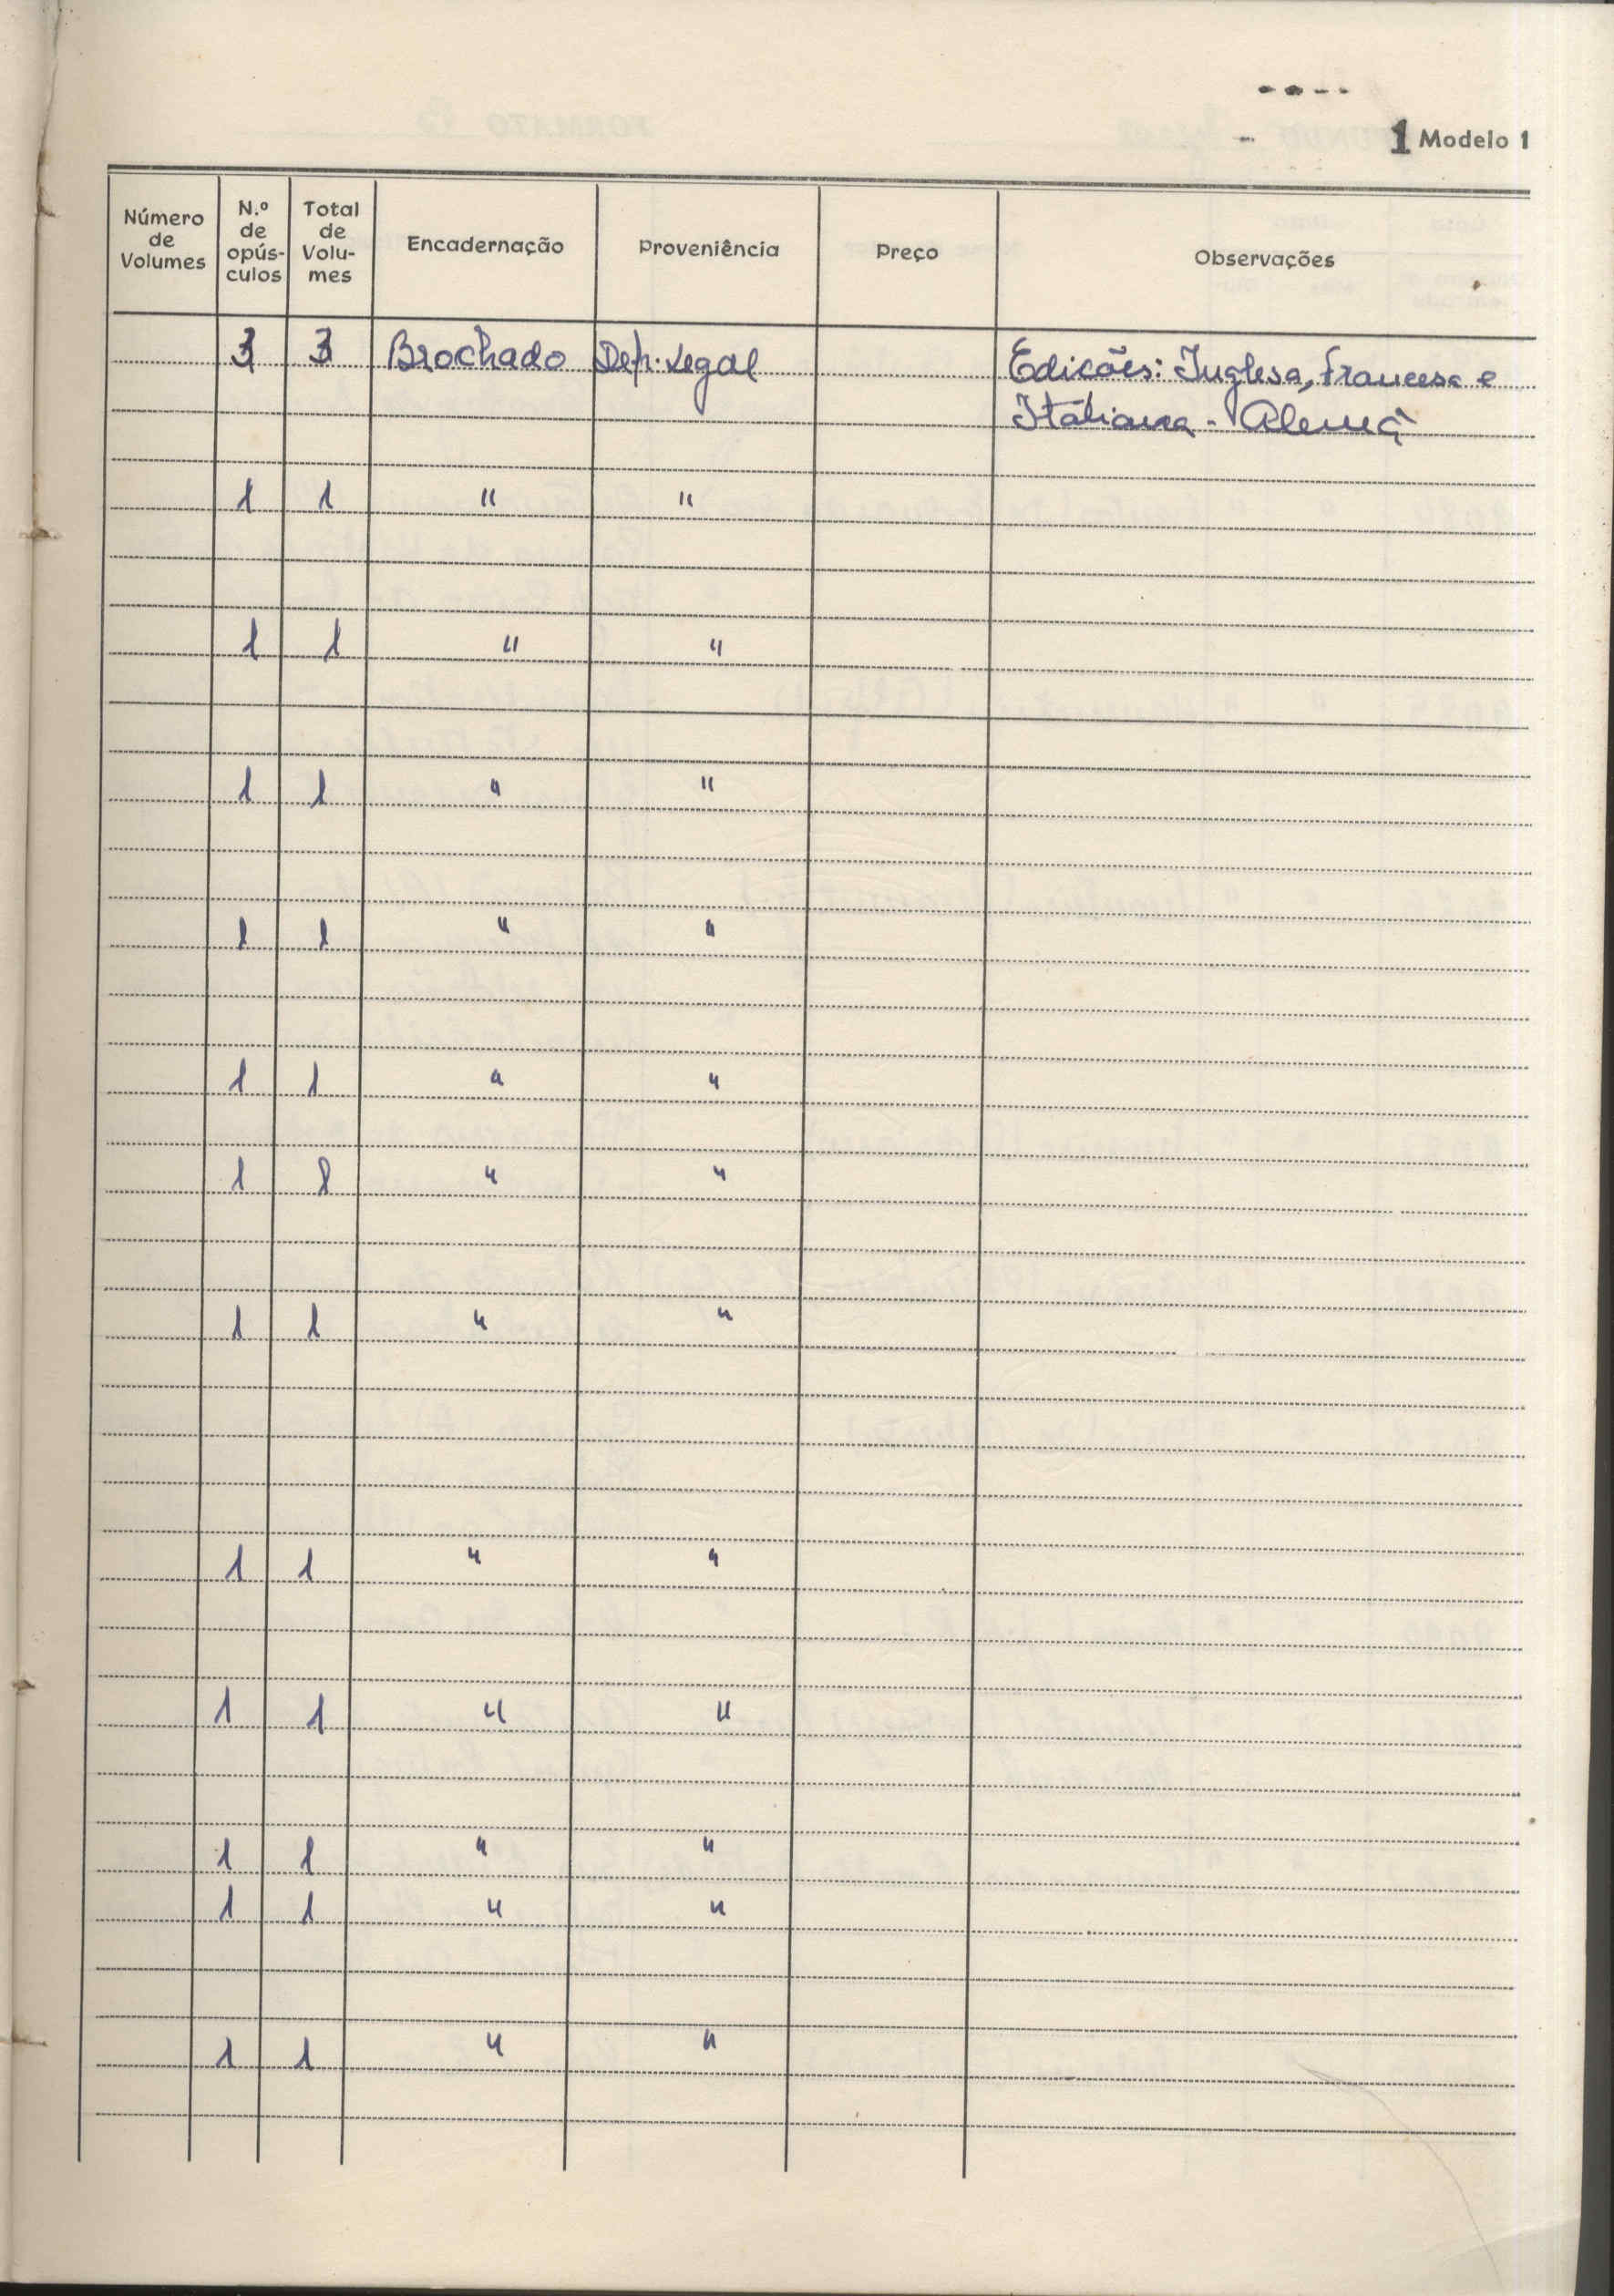 1 Modelo 1
Número de Volumes N.º de opús-culos Total de Volu-mes Encadernação Proveniência Preço Observações
3 3 Brochado Dep. Legal Edicões: Inglesa, francesa e
Italiana - Alemã
1 1 " "
1 1 " "
1 1 " "
1 1 " "
1 1 " "
1 " "
1 1 " "
1 1 " "
1 1 " "
1 1 " "
1 1 " "
1 1 " "